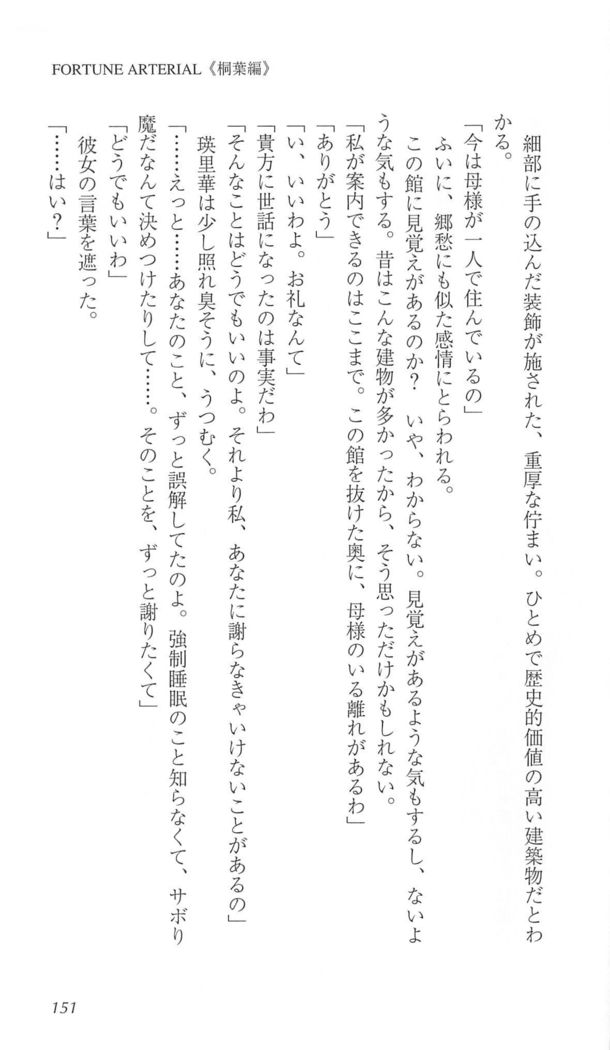 FORTUNE ARTERIAL《桐葉編》
　細部に手の込んだ装飾が施された、重厚な佇まい。ひとめで歴史的価値の高い建築物だとわ
かる。
「今は母様が一人で住んでいるの」
　ふいに、郷愁にも似た感情にとらわれる。
　この館に見覚えがあるのか？　いや、わからない。見覚えがあるような気もするし、ないよ
うな気もする。昔はこんな建物が多かったから、そう思っただけかもしれない。
「私が案内できるのはここまで。この館を抜けた奥に、母様のいる離れがあるわ」
「ありがとう」
「い、いいわよ。お礼なんて」
「貴方に世話になったのは事実だわ」
「そんなことはどうでもいいのよ。それより私、あなたに謝らなきゃいけないことがあるの」
　瑛里華は少し照れ臭そうに、うつむく。
「……えっと……あなたのこと、ずっと誤解してたのよ。強制睡眠のこと知らなくて、サボり
魔だなんて決めつけたりして……。そのことを、ずっと謝りたくて」
「どうでもいいわ」
　彼女の言葉を遮った。
「……はい？」
151